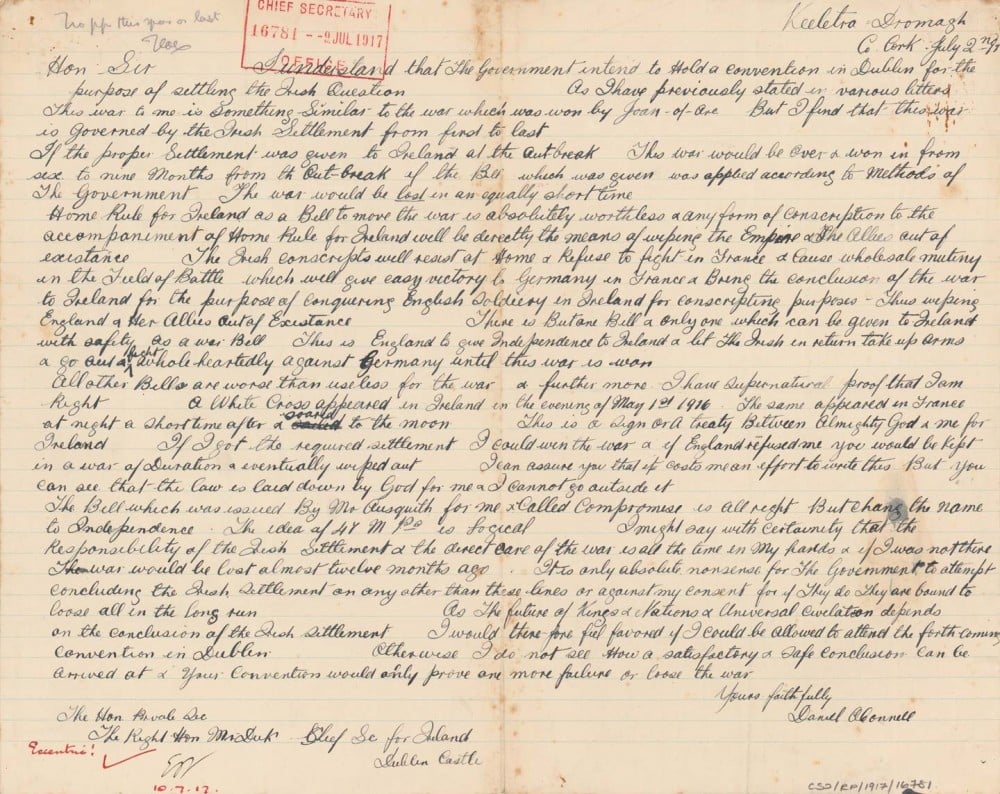 No pp this year or last
CHIEF SECRETARY
16781 - -9 JUL 1917
OFFICE
Keeletra - Dromagh
Co. Cork - July 2nd
Hon - Sir I understand that The Government intend to Hold a convention in Dublin for the
purpose of settling the Irish Question As I have previously stated in various letters
This war to me is Something Similar to the war which was won by Joan-of-Arc But I find that this war
is Governed by the Irish Settlement from first to last
If the proper Settlement was given to Ireland at the outbreak This war would be over & won in from
six to nine Months from th out-break if the Bill which was given was applied according to Methods of
The Government The war would be lost in an equally short time
Home Rule for Ireland as a Bill to move the war is absolutely worthless & any form of Conscription to the
accompaniment of Home Rule for Ireland will be directly the means of wiping the Empire & The Allies out of
existance The Irish Conscripts will resist at Home & Refuse to fight in France & Cause wholesale mutiny
in the Field of Battle which will give easy victory to Germany in France & Bring the conclusion of the war
to Ireland for the purpose of conquering English Soldiery in Ireland for conscripting purposes - Thus wiping
England & Her Allies out of Existance There is But one Bill & only one which can be given to Ireland
with safety as a war Bill This is England to give Independence to Ireland & let The Irish in return take up arms
& go out & Fight whole-heartedly against Germany until this war is won
All other Bills are worse than useless for the war & further more I have supernatural proof that I am
Right A White Cross appeared in Ireland in the evening of May 1st 1916. The same appeared in France
at night a short time after & soared to the moon This is a Sign or a treaty Between Almighty God & me for
Ireland If I got the required settlement I could win the war & if England refused me you would be kept
in a war of Duration & eventually wiped out I can assure you that it costs me an effort to write this But you
can see that the law is laid down by God for me & I cannot go outside it
The Bill which was issued By Mr Ausquith for me & Called Compromise is all right But chang the name
to Independence. The idea of 47 M Ps is Logical I might say with certainity that the
Responsibility of the Irish Settlement & the direct care of the war is all the time in My hands & if I was not there
The war would be lost almost twelve months ago. It is only absolute nonsense for The Government to attempt
concluding the Irish Settlement on any other than these lines or against my consent for if They do They are bound to
loose all in the long run As The future of Kings & Nations & Universal civelation depends
on the conclusion of the Irish settlement I would there fore fiel favored if I could be allowed to attend the forth coming
convention in Dublin Otherwise I do not see How a satisfactory & safe conclusion can be
arrived at & Your Convention would only prove are more failure or loose the war
Yours faithfully
Daniel O'Connell
The Hon Private Sec
The Right Hon Mr Duk Chief Sc for Ireland
Dublin Castle
Eccentric!
10.7.17.
CSO/RP/1917/16781